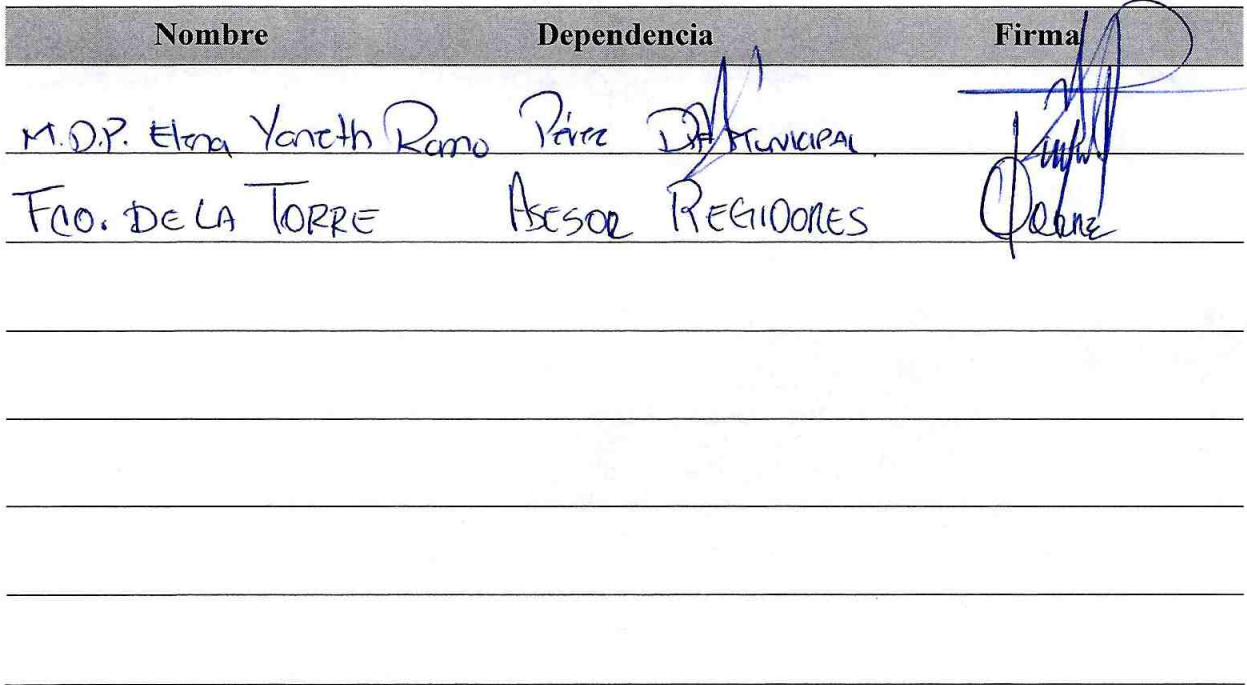 Nombre Dependencia Firma
M.D.P. Elena Yaneth Ramo Pérez DIF Municipal
Fco. DE LA TORRE ASESOR REGIDORES